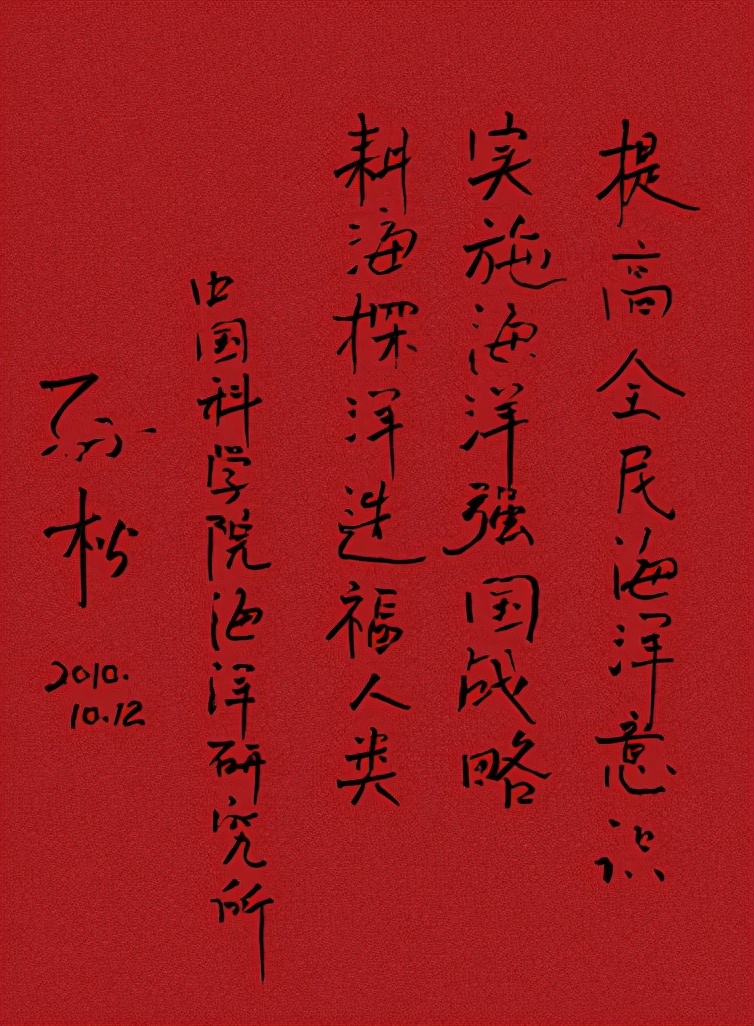 提高全民海洋意识
实施海洋强国战略
耕海探洋造福人类
中国科学院海洋研究所
孙松
2010.
10.12